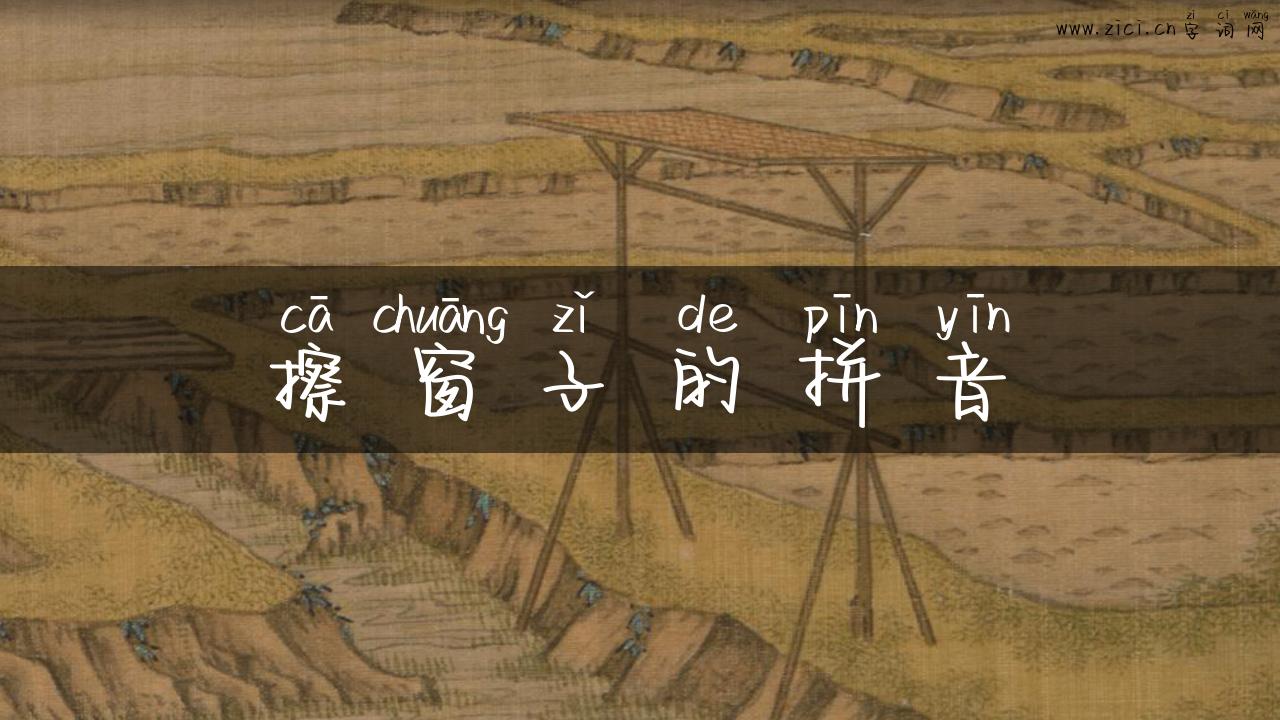 zì cí wǎng
www.zici.cn 字 词 网
cā chuāng zǐ de pīn yīn
擦 窗 子 的 拼 音